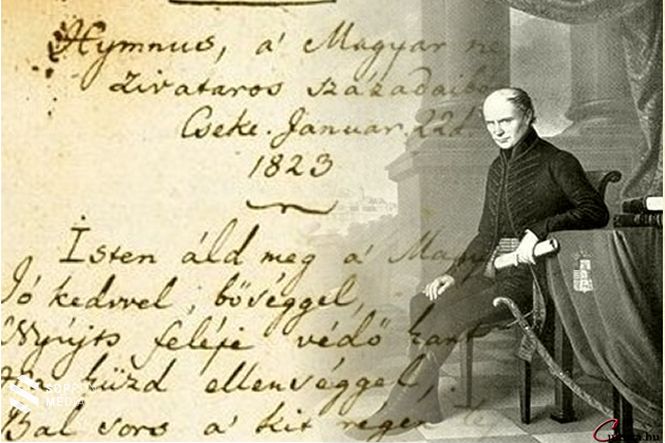 Hymnus, a' Magyar ne
zivataros századaibó
Cseke. Januar. 22d.
1823
Isten áld meg a' Magy
Jó kedvvel, bőséggel,
Nyújts feléje védő kart
küzd ellenséggel,
Bal sors a' kit régen
SOPRON
MEDIA